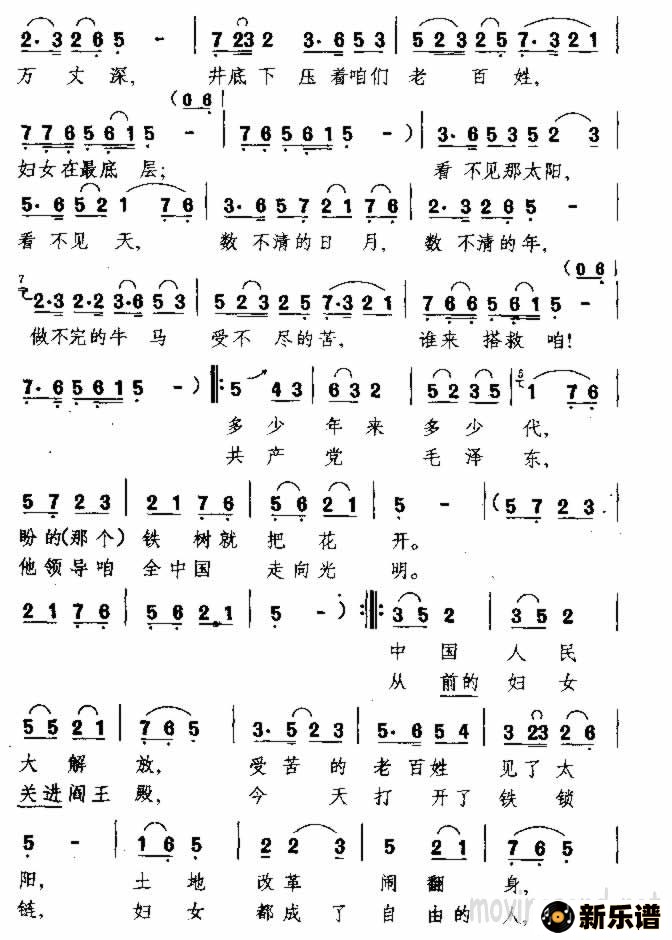 2·3 2 6 5 - | 7 23 2 3·6 5 3 | 5 2 3 2 5 7·3 2 1 |
万丈深，井底下压着咱们老百姓，
(0 6
7 7 6 5 6 1 5 - | 7 6 5 6 1 5 - ) | 3·6 5 3 5 2 2 3 |
妇女在最底层；看不见那太阳，
5·6 5 2 1 7 6 | 3·6 5 7 2 1 7 6 | 2·3 2 6 5 - |
看不见天，数不清的日月，数不清的年，
(0 6
7 2·3 2·2 3·6 5 3 | 5 2 3 2 5 7·3 2 1 | 7 6 6 5 6 1 5 - |
做不完的牛马受不尽的苦，谁来搭救咱！
7·6 5 6 1 5 - ) ‖: 5 4 3 | 6 3 2 | 5 2 3 5 | 1 7 6 |
多少年来多少代，
共产党毛泽东，
5 7 2 3 | 2 1 7 6 | 5 6 2 1 | 5 - | (5 7 2 3 |
盼的(那个)铁树就把花开。
他领导咱全中国走向光明。
2 1 7 6 | 5 6 2 1 | 5 - ) :‖: 3 5 2 | 3 5 2 |
中国人民
从前的妇女
5 5 2 1 | 7 6 5 | 3·5 2 3 | 5·6 5 4 | 3 23 2 6 |
大解放，受苦的老百姓见了太
关进阎王殿，今天打开了铁锁
5 - | 1 6 5 | 2 2 3 | 5 2 1 | 7 6 5 |
阳，土地改革闹翻身，
链，妇女都成了自由的人，
新乐谱